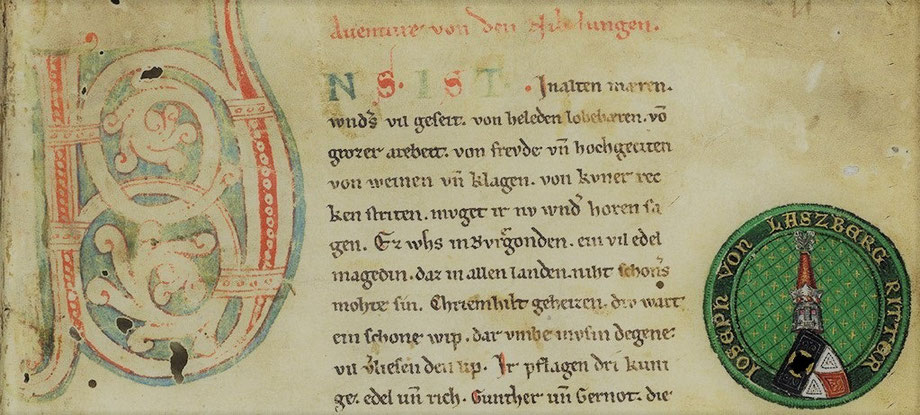 Auenture von den Nibelungen.
NS. IST. Inalten mæren.
wnds vil geseit. von heleden lobebæren. võ
grozer arebeit. von frevde vñ hochgeciten
von weinen vñ klagen. von kvner rec
ken striten. mvget ir nv wnd horen sa
gen. Ez whs inBvrgonden. ein vil edel
magedin. daz in allen landen. niht schons
mohte sin. Chriemhilt geheizen. div wart
ein schone wip. dar vmbe mvsin degene
vil vliesen den lip. Ir pflagen dri kuni
ge. edel vñ rich. Gunther vñ Gernot. die
IOSEPH VON LASZBERG RITTER